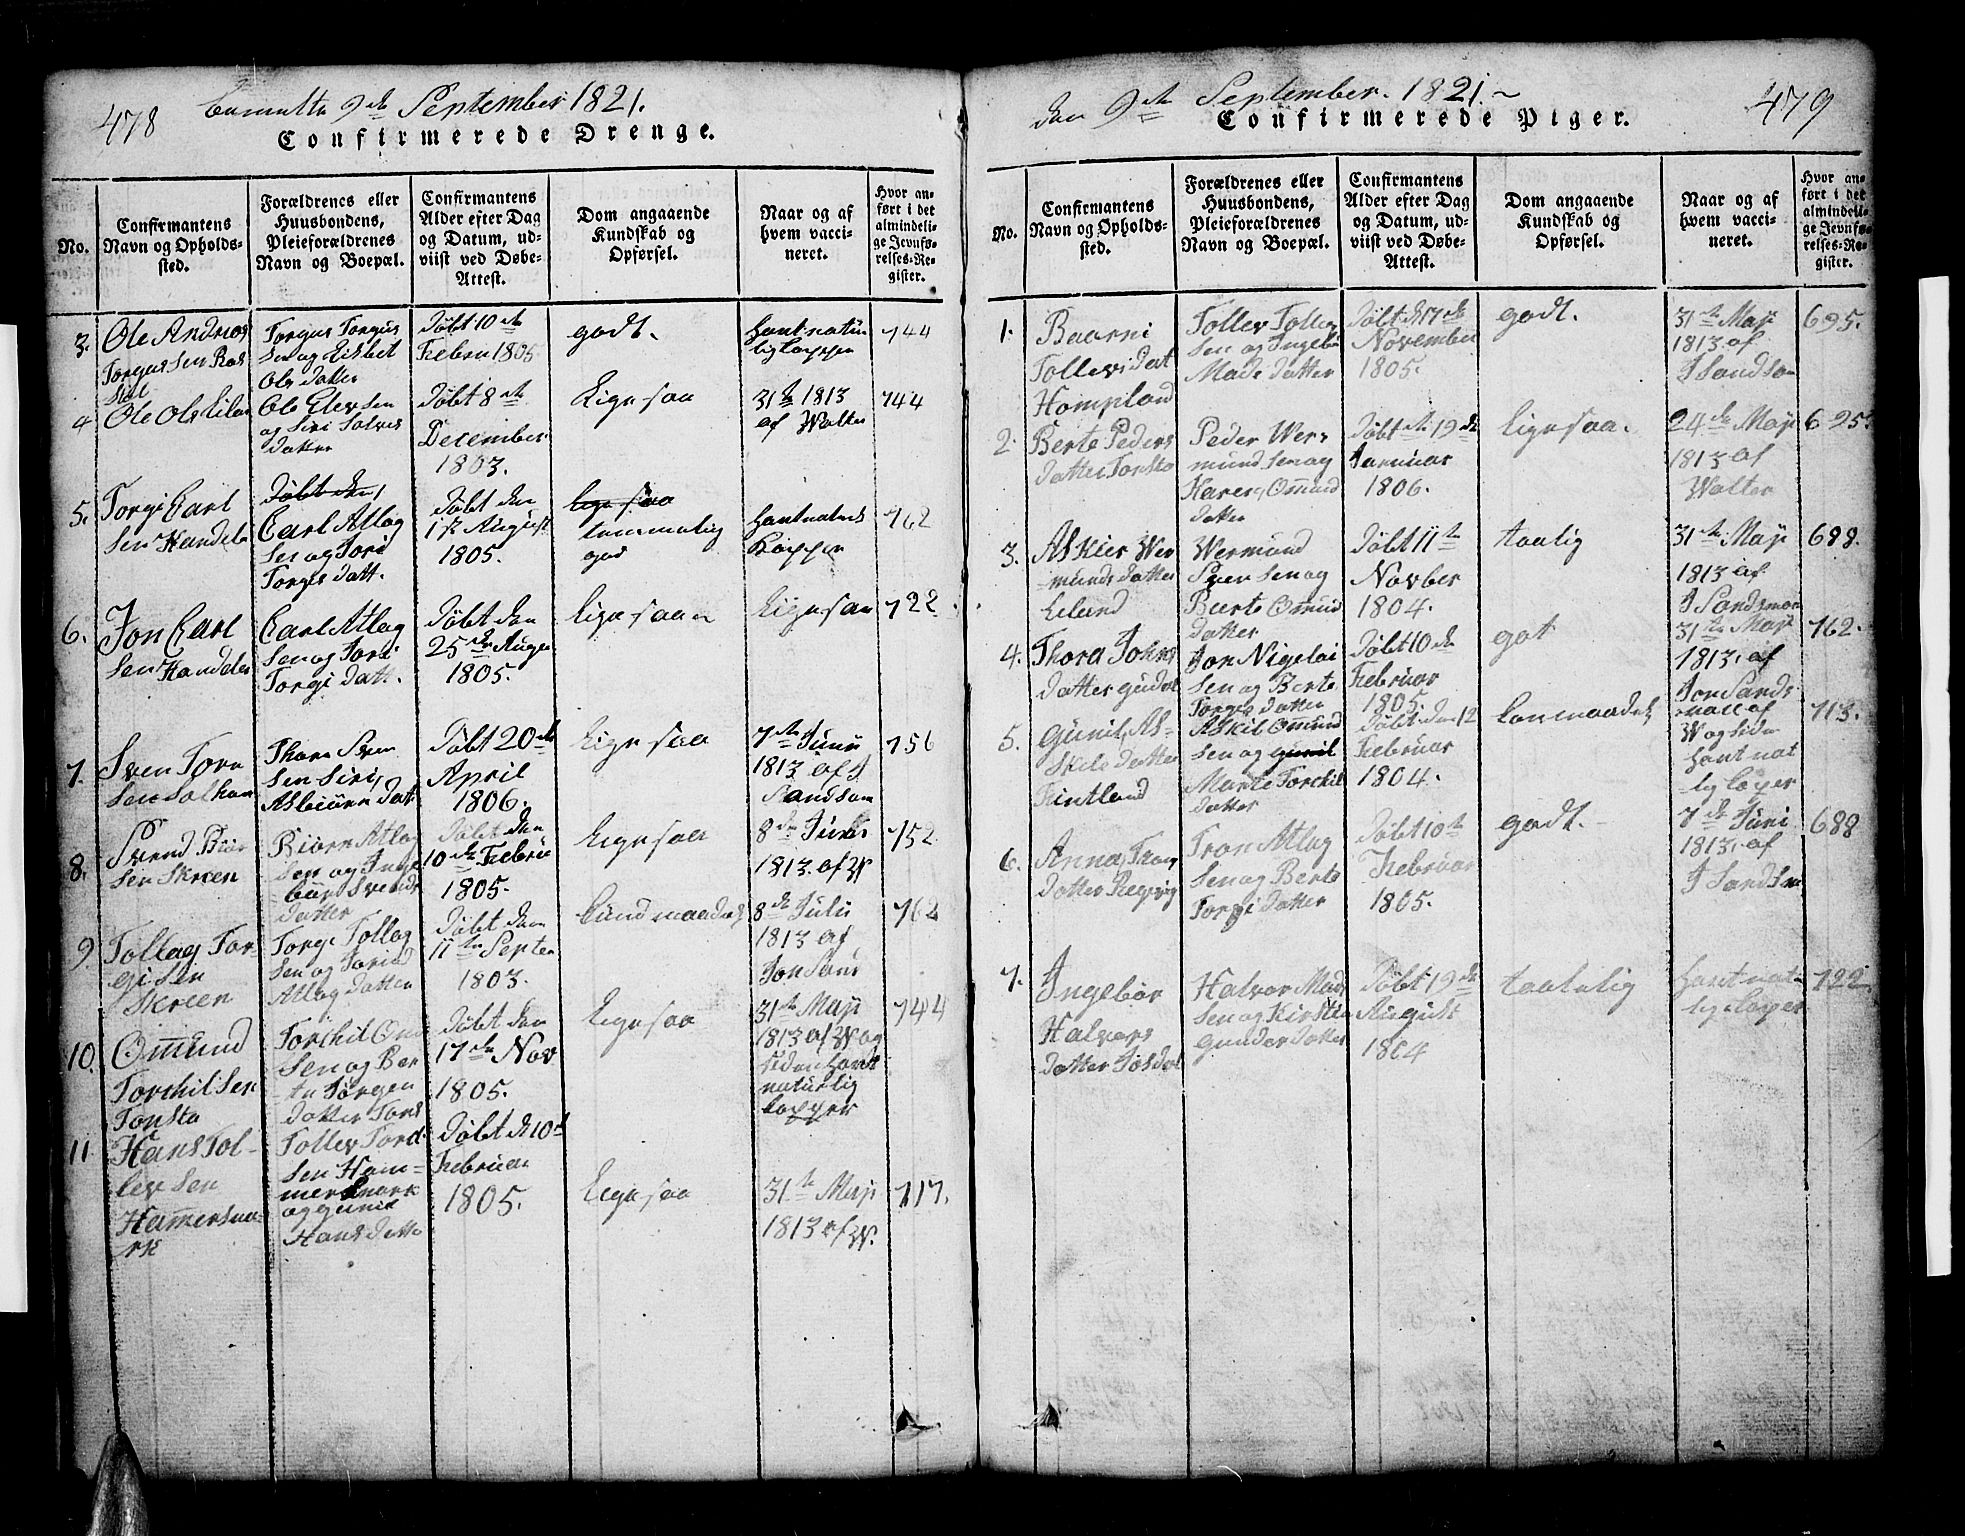 478
9de September 1821.
Confirmerede Drenge.
No.
Confirmantens
Navn og Opholds-
sted.
Forældrenes eller
Huusbondens,
Pleieforældrenes
Navn og Boepæl.
Confirmantens
Alder efter Dag
og Datum, ud-
viist ved Døbe-
Attest.
Dom angaaende
Kundskab og
Opførsel.
Naar og af
hvem vacci-
neret.
Hvor an-
ført i det
almindeli-
ge Jevnfø-
relses-Re-
gister.
3.
Ole Andreas
Torgus Sen
Torgus Torgus
Sen og Lisbet
Ols datter
Døbt 10de
Febru 1805
godt.
hant natur
lig Copper
744
4
Ole Ols
Ole Elev Sen
og Siri Salves
datter
Døbt 8de
December
1803.
Ligesaa
31te 1813
af Walter
744
5.
Torgi Carl
Sen Handeln
Døbt den
Carl Atlag
Sen og Tori
Torges datt.
Døbt den
17 August
1805.
lige saa
temmelig
god
hant naturl
Kopper
762
6.
Jon Carl
Sen Handeln
Carl Atlag
Sen og Tori
Torgi datt.
Døbt den
25de Augu
1805.
Ligesaa
Ligesaa
722.
7.
Sven Torn
Sen Solhom
Thorn Sven
Sen Siri
Asbiørn dat
Døbt 20de
April
1806.
Ligesaa
7de Juni
1813 af J
Sandsam
756
8.
Svend Biør
Sen Skreen
Biørn Atlag
Sen og Inge
bør Svends
datter
Døbt den
10de Febru
1805.
Ligesaa
8de Juni
1813. af W
752.
9.
Tollag Tor-
gi Sen
Skreen
Torge Tollag
Sen og Torind
Atlag datter
Døbt den
11te Septem
1803.
Cundmaadelig
8de Juli
1813 af
Jon Sans
762
10.
Omund
Torchil Sen
Tonsta
Torchil Om
Sen og Ber
te Torgen
datter Tons
Døbt den
17de Nov
1805.
Ligesaa
31te Maji
1813 af W og
siden hant
naturlig
Copper
744
11
Hans Tol-
lev Sen
Hamersma-
rk
Tollev Tord
Sen Ham-
mersmark
og gunil
Hans datte
Døbt d 10de
Februar
1805.
Ligesaa
31te Maji
1813 af W.
717.
479
den 9de September 1821.
Confirmerede Piger.
No.
Confirmantens
Navn og Opholds-
sted.
Forældrenes eller
Huusbondens,
Pleieforældrenes
Navn og Boepæl.
Confirmantens
Alder efter Dag
og Datum, ud-
viist ved Døbe-
Attest.
Dom angaaende
Kundskab og
Opførsel.
Naar og af
hvem vacci-
neret.
Hvor an-
ført i det
almindeli-
ge Jevnfø-
relses-Re-
gister.
1.
Baarni
Tollevs Dat
Hompland
Tollev Tollev
Sen og Ingebor
Mads datter
Døbt d 17de
November
1805.
godt.
31te Maji
1813 af
J Sandsom
695.
2.
Berte Peders
datter Tonsta
Peder Wer-
mund Sen og
Karen Omund
datter
Døbt d 19de
Januar
1806.
Ligesaa.
24de Maji
1813 af
Walter
695.
3.
Askier Wer
munds datter
Eilund
Wermund
Sven Sen og
Berte Omund
datter
Døbt 11te
Novber
1804.
taalig
31te Maji
1813 af
J Sandsmon
688.
4.
Thora Johns
datter
Jon Nigelai
Sen og Berte
Torges datter
Døbt 10de
Februar
1805.
got
31te Maji
1813. af
Jon Sands
762.
5.
Gunil As-
kels datter
Fintland
Askil Omund
Sen og gunil
Marte Torchil
datter
Døbt den 12
Februar
1804.
Conmaadelig
W og siden
hant nat
lig Coper
713.
6.
Anna Tron
datter
Tron Atlag
Sen og Berte
Torgi datter
Døbt 10te
Februar
1805.
godt.
7de Juni
1813. af
J Sandsm
688
7.
Ingebor
Halvors
datter Josdal
Halvor Mads
Sen og Kirstin
gunder datter
Døbt 19de
August
1804
taalelig
hant natu
lig Coper
722